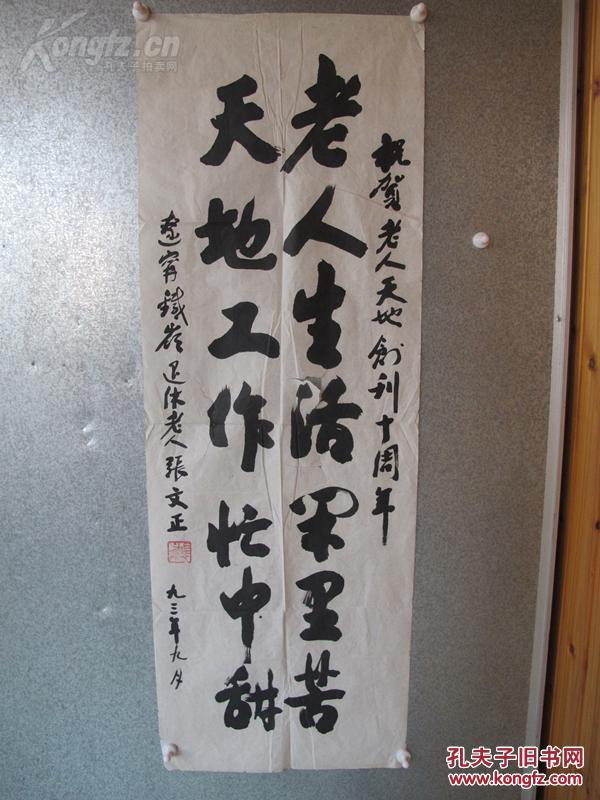 祝賀老人天地創刊十周年
老人生活闲里苦
天地工作忙中甜
遼寧鐵岺退休老人張文正
九三年九月
Kongfz.cn
孔夫子拍卖网
孔夫子旧书网
www.kongfz.com